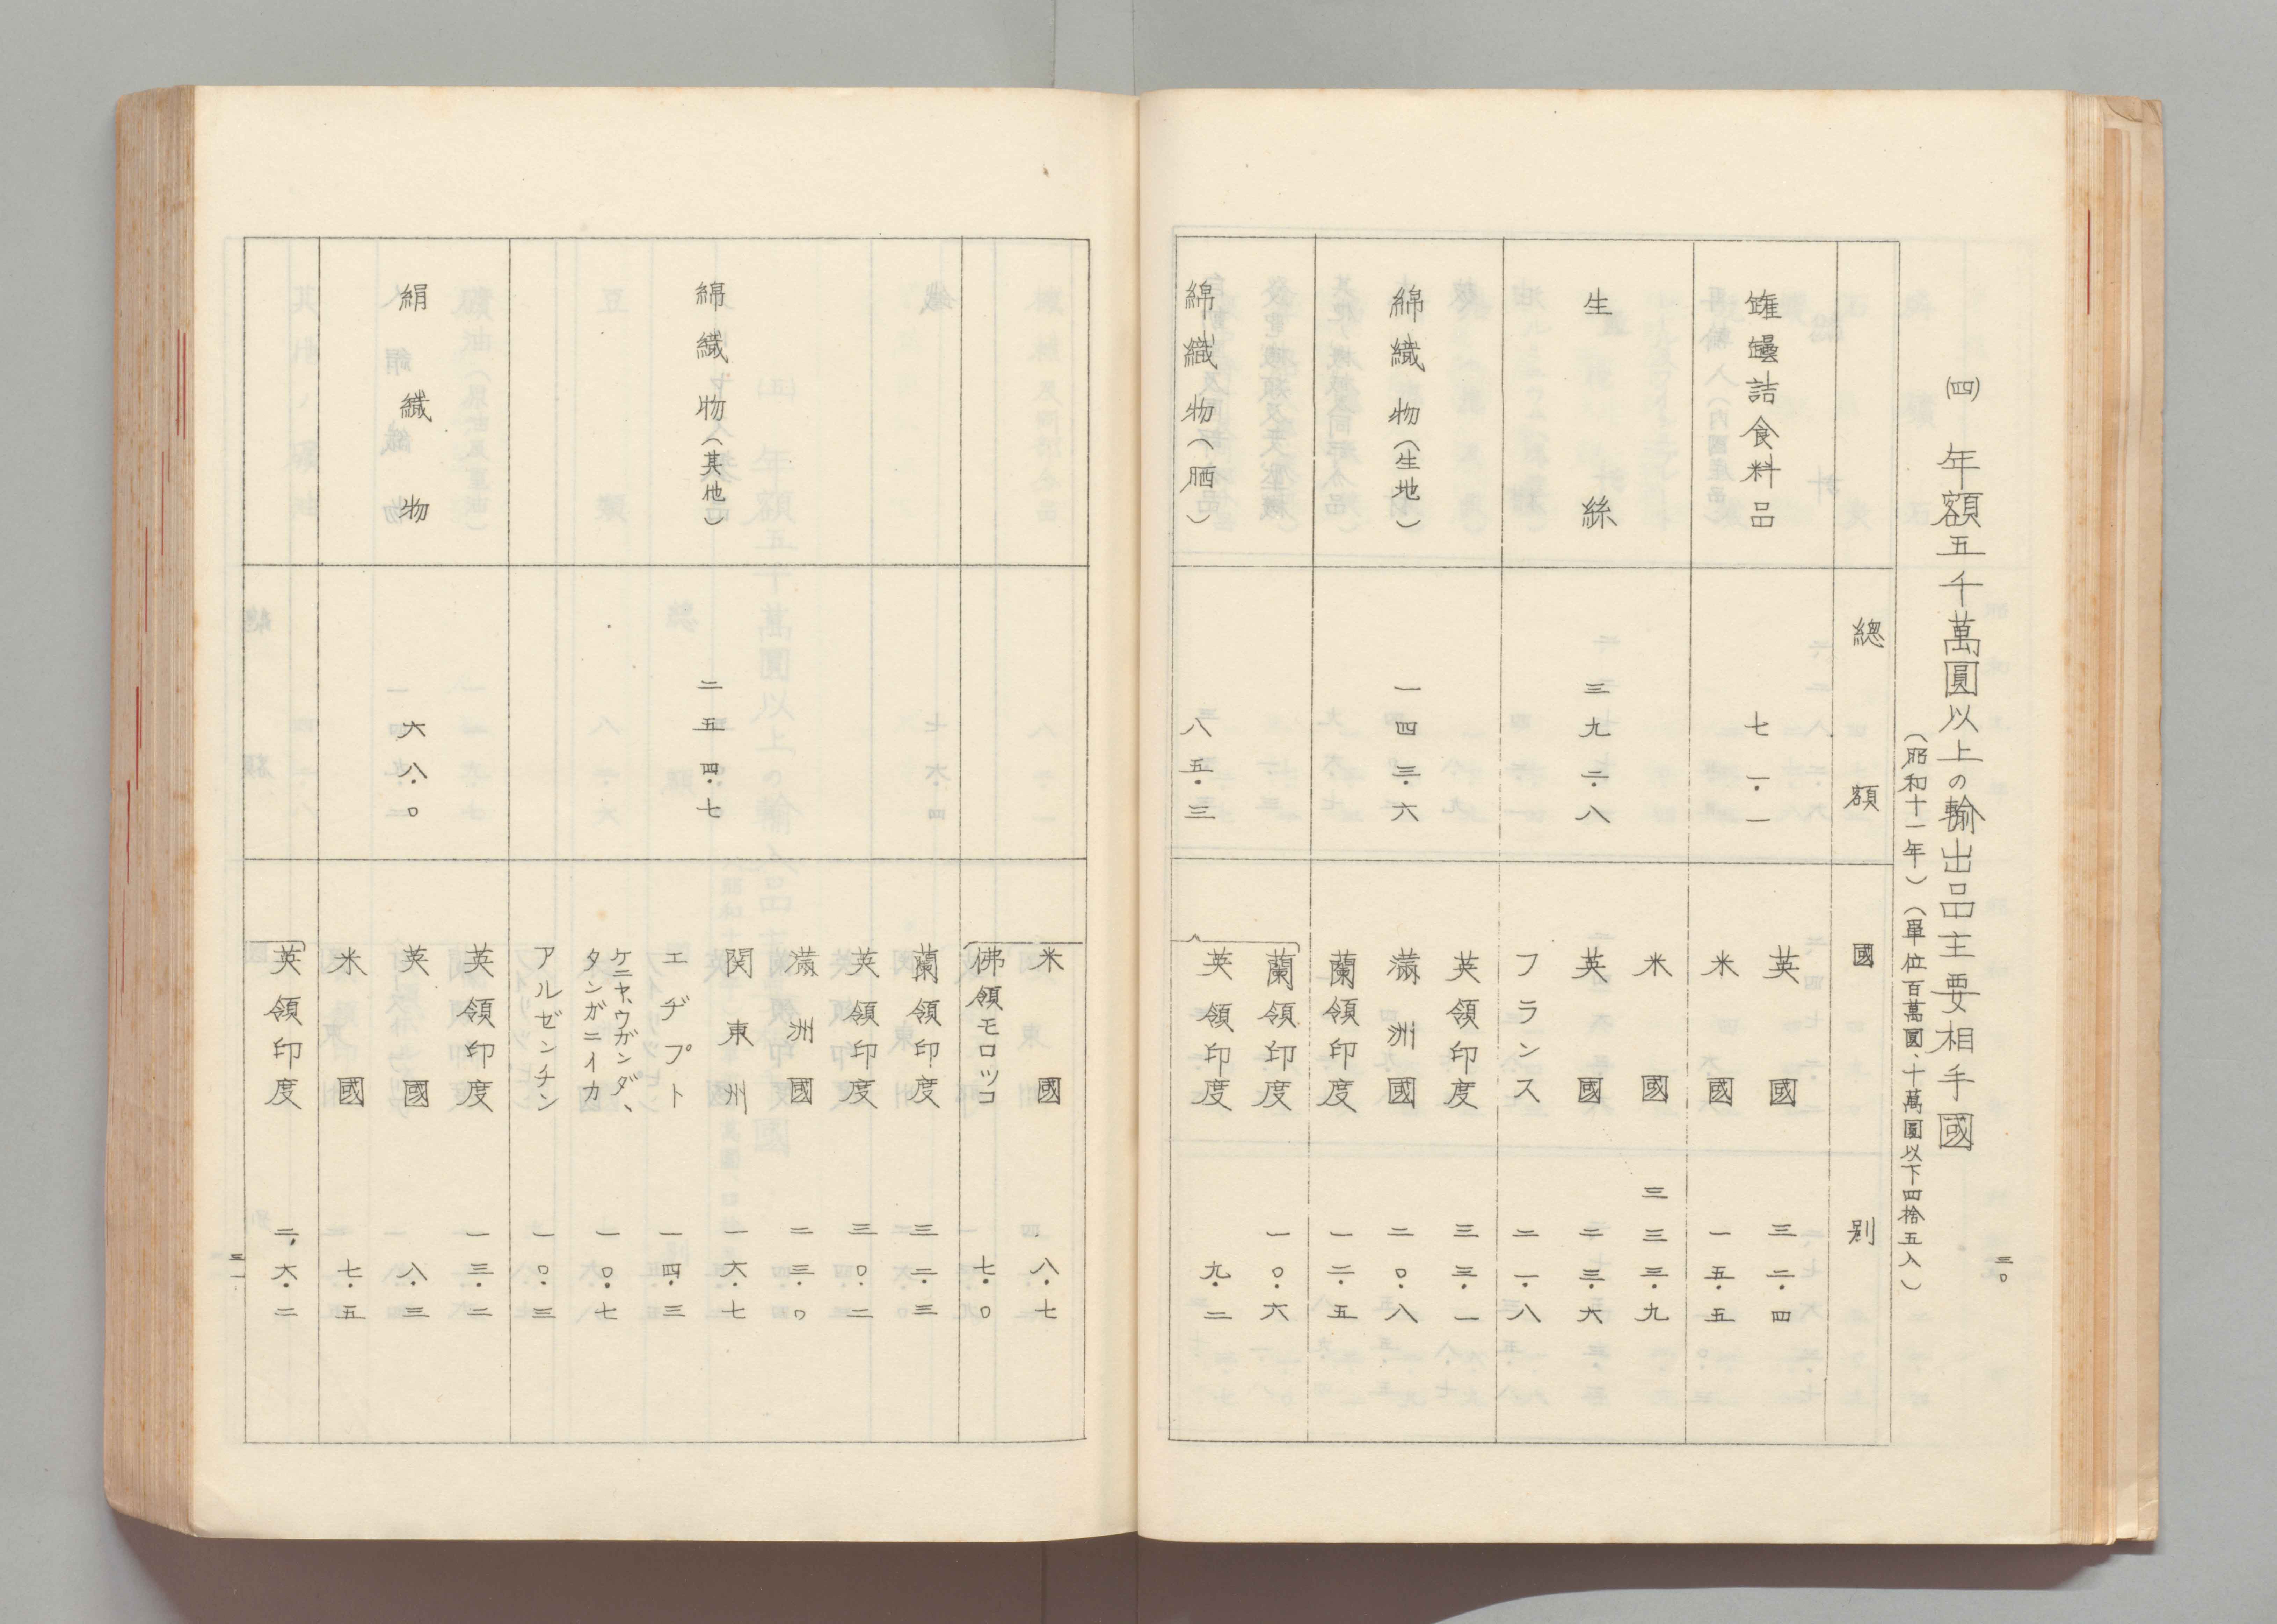 三〇
㈣ 年額五千萬圓以上の輸出品主要相手國
（昭和十一年）（單位百萬圓、十萬圓以下四捨五入）
總額
國別
罐罎詰食料品
七一・一
英國 三二・四
米國 一五・五
生絲
三九二・八
米國 三三三・九
英國 二三・六
フランス 二一・八
綿織物（生地）
一四三・六
英領印度 三三・一
滿洲國 二〇・八
蘭領印度 一二・五
綿織物（晒）
八五・三
蘭領印度 一〇・六
英領印度 九・二
米國 八・七
佛領モロツコ 七・〇
綿織物（其他）
二五四・七
蘭領印度 三二・三
英領印度 三〇・二
滿洲國 二三・〇
関東州 一六・七
エヂプト 一四・三
ケニヤ、ウガンダ、
タンガニイカ 一〇・七
アルゼンチン 一〇・三
絹織物
六八・〇
英領印度 一三・二
英國 八・三
米國 七・五
英領印度 二六・二
三一